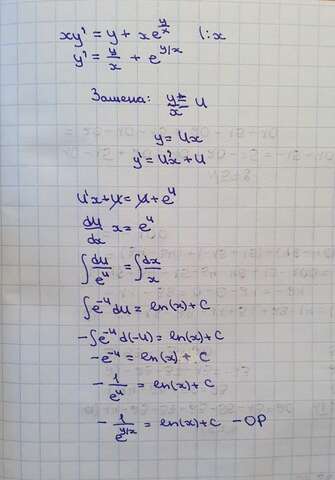 xy' = y + xe^{y/x} |:x
y' = y/x + e^{y/x}
Замена: y/x = u
y = ux
y' = u'x + u
u'x + u = u + e^u
du/dx x = e^u
∫ du/e^u = ∫ dx/x
∫ e^{-u} du = ln(x) + C
-∫ e^{-u} d(-u) = ln(x) + C
-e^{-u} = ln(x) + C
- 1/e^u = ln(x) + C
- 1/e^{y/x} = ln(x) + C - ОР